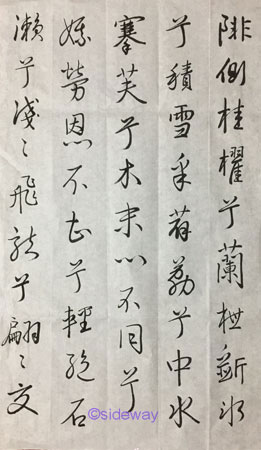 陫側桂櫂兮蘭枻斲冰
兮積雪采薜荔兮中水
搴芙兮木末心不同兮
媒勞恩不甚兮輕絕石
瀨兮淺〻飛龍兮翩〻交
©sideway